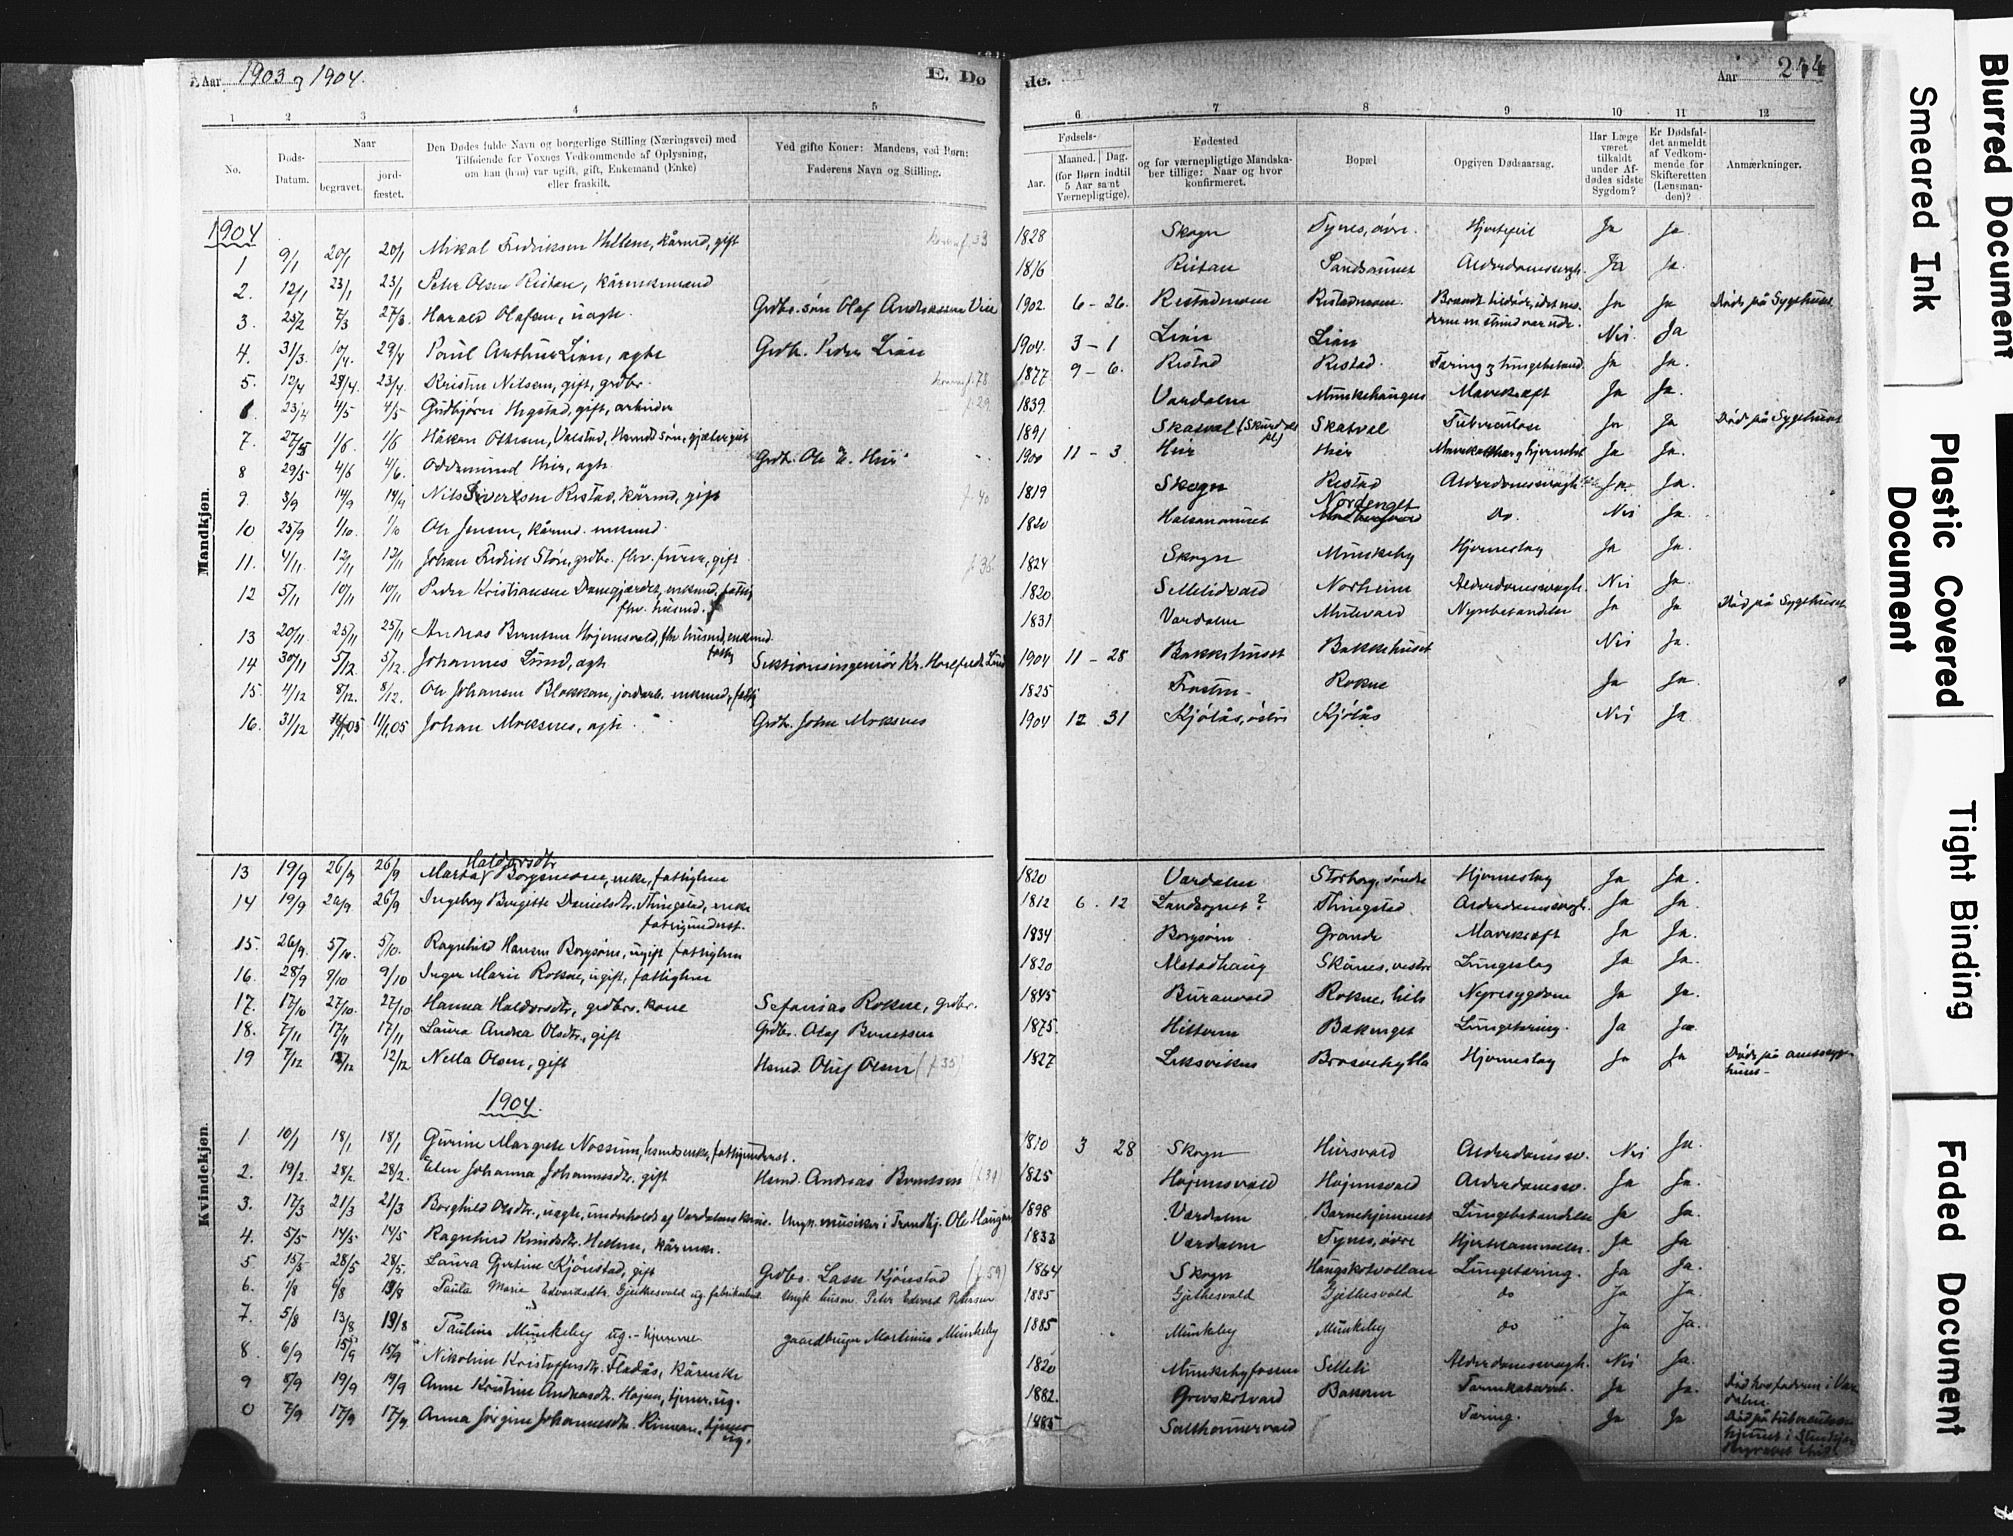 Aar 1903 og 1904.
E. Dø
de.
Aar 244
1 2 3 4 5 6 7 8 9 10 11 12
No.
Døds-Datum.
Naar
begravet.
jord-fæstet.
Den Dødes fulde Navn og borgerlige Stilling (Næringsvei) med
Tilføiende for Voxnes Vedkommende af Oplysning,
om han (hun) var ugift, gift, Enkemand (Enke)
eller fraskilt.
Ved gifte Koner: Mandens, ved Børn:
Faderens Navn og Stilling.
Fødsels-
Aar.
Maaned. Dag.
(for Børn indtil
5 Aar samt
Værnepligtige).
Fødested
og for værnepligtige Mandska-
ber tillige: Naar og hvor
konfirmeret.
Bopæl
Opgiven Dødsaarsag.
Har Læge
været
tilkaldt
under Af-
dødes sidste
Sygdom?
Er Dødsfal-
det anmeldt
af Vedkom-
mende for
Skifteretten
(Lensman-
den)?
Anmærkninger.
Mandkjøn.
1904
1 9/1 20/1 20/1 Mikal Fredriksen Hellem, kårmd, gift 1828 Skogn Tynes, øvre. Hjertefeil Ja Ja.
2. 12/1 23/1 23/1 Peter Olsen Ristan, kårenkemand 1816 Ristan Sandsaunet Alderdomssvagh. Ja Ja.
3. 25/2 7/3 27/3 Harald Olafsen, uægte Grdbr. søn Olaf Andreassen Vue 1902. 6-26. Ristadmoen Ristadmoen. Ja Ja Død på Sygehuset
4. 31/3 10/4. 29/4 Paul Arthur Lian, ægte Grdbr. Peder Lian 1904. 3-1 Lian Lian Nei Ja
5. 12/4 23/4. 23/4. Kristen Nilsen, gift, grdbr. 1877 9-6. Ristad Ristad. Tæring og lungebetænd. Ja Ja.
6. 23/4 4/5 4/5 Gudbjørn Hegstad, gift, arbeider 1839. Værdalen Munkehaugen Mavekræft Ja Ja.
7. 27/5 1/6 1/6 Håkon Olsen, 1891 Skatval Skatval Tuberculose Ja Ja Død på Sygehuset
8 29/5 4/6 4/6. Oddemund Heir, ægte Grdbr. Ole E. Heir 1900 11-3 Heir Heir Ja Ja.
9. 3/9 14/9 14/9 Nils Sivertsen Ristad, kårmd, gift 1819 Skogn Ristad Alderdomssvagh. Ja. Ja.
10 25/9 1/10. 1/10 Ole Jensen, kårmd. enkemd. 1820 Halsanaunet Nordenget Do. Nei Ja.
11. 4/11. 12/11 12/11 Johan Fredrik Støre, grdbr. fhv. furer, gift 1824 Skogn Munkeby Hjerneslag Ja Ja.
12 5/11 10/11 10/11 Peder Kristiansen Damgjærdet, enkemd. fattig fhv. husmd. 1820. Sellelidvald Norheim Alderdomssvagh. Nei Ja.
13 20/11. 25/11 25/11 Andreas Berntsen Højemsvald, fhv husmd, enkemd. fattig 1831 Værdalen Mulevald Nyrebetændelse Ja Ja Død på Sygehuset
14 30/11 5/12. 5/12. Johannes Lund, ægte Sektionsingeniør Kr. Lund 1904 11-28 Bakkehuset Bakkehuset Nei Ja.
15. 4/12 8/12. 8/12. Ole Johansen Blokkan, jordarb. enkemd, fattig 1825 Frosten. Rokne Ja Ja.
16. 31/12 11/1.05 11/1.05 Johan Moksnes, ægte Grdbr. John Moksnes 1904 12 31 Kjølås, østre Kjølås Nei Ja
Kvindekjøn.
13 19/9 26/9 26/9 Marta Haldorsdtr Borgsmoen, enke, fattiglem 1820 Værdalen Storborg, søndre Hjerneslag Ja Ja.
14 19/9 26/9 26/9 Ingeborg Birgitte Danielsdtr. Thingstad, enke fattigunderst. 1812 6. 12 Landsognet? Thingstad. Alderdomssvagh. Ja Ja.
15. 26/9. 5/10. 5/10. Ragnhild Hansen Borgsøen, ugift fattiglem 1834 Borgsøen Grande Mavekræft Ja Ja.
16. 28/9 9/10 9/10 Inger Marie Rokne, ugift, fattiglem 1820 Alstadhaug Skånes, vestre Lungeslag Ja Ja.
17. 17/10 27/10. 27/10 Hanna Haldorsdtr, grdbrs. kone Sefanias Rokne, grdbr. 1845 Buranvald Rokne, lille Nyresygdom Ja Ja.
18. 7/11 17/11 17/11 Laura Andrea Olsdtr., gift Grdbr. Olaf Berntsen 1875. Hitteren Bakenget Lungetæring. Ja Ja
19 7/12 12/12 12/12 Nella Olsen, gift Hsmd. Oluf Olsen (f. 35) 1827 Leksviken Hjerneslag Ja Ja Død på amtssygehuset-
1904.
1 10/1 18/1 18/1 Gurine Margrete Nossum, husmdsenke, fattigunderst. 1810 3 28 Skogn Heirsvald Alderdomssv. Nei Ja.
2. 19/2 28/2 28/2. Elen Johanna Johannesdtr. gift Hsmd. Andreas Berntsen 1825 Højemsvald Højemsvald Alderdomssv. Ja Ja.
3. 17/3 21/3 21/3 Borghild Olsdtr., uægte, underholdt af Værdalens kom. Ungk. musiker i Trondhj. Ole Haugan 1898 Værdalen Barnehjemmet Lungebetændelse Ja Ja.
4. 5/5 14/5 14/5 Ragnhild Knudsdtr. Hellem, kårenke. 1833 Værdalen Tynes, øvre Hjertelammelse. Ja Ja
5 15/5 28/5 28/5. Laura Gjertine Kjønstad, gift Grdbr. Lasse Kjønstad (f. 59) 1864 Skogn Haugskotvollan Lungetæring. Ja Ja
6. 1/8 6/8 13/8 Paula Marie Edvardsdtr. Gjeitlesvald ug. fabrikarbeid. Ungk husm. Peter Edvard Petersen 1885 Gjeitlesvald Gjeitlesvald do Ja Ja
7. 5/8 13/8 13/8 Pauline Munkeby ug. - hjemme gaardbruger Martinus Munkeby 1885 Munkeby Munkeby do Ja Ja.
8 6/9 15/9 15/9 Nikoline Kristoffersdtr. Fladås, kårenke 1820 Munkebyfossen Selleli Alderdomssvagh. Nei Ja.
9 8/9 19/9 19/9 Anne Kristine Andreasdtr. Højem, tjener, ug. 1882. Grevskotvald Bakken Tarmkatarrh. Ja Ja. Død hos faderen i Værdalen
0 7/9 17/9 17/9 Anna Jørgine Johannesdtr. Rinnan, tjener ug. 1885 Salthammervald Tæring. Ja Ja Død på tuberculosehjemmet i Stenkjær
Blurred Document
Smeared Ink
Plastic Covered Document
Tight Binding
Faded Document